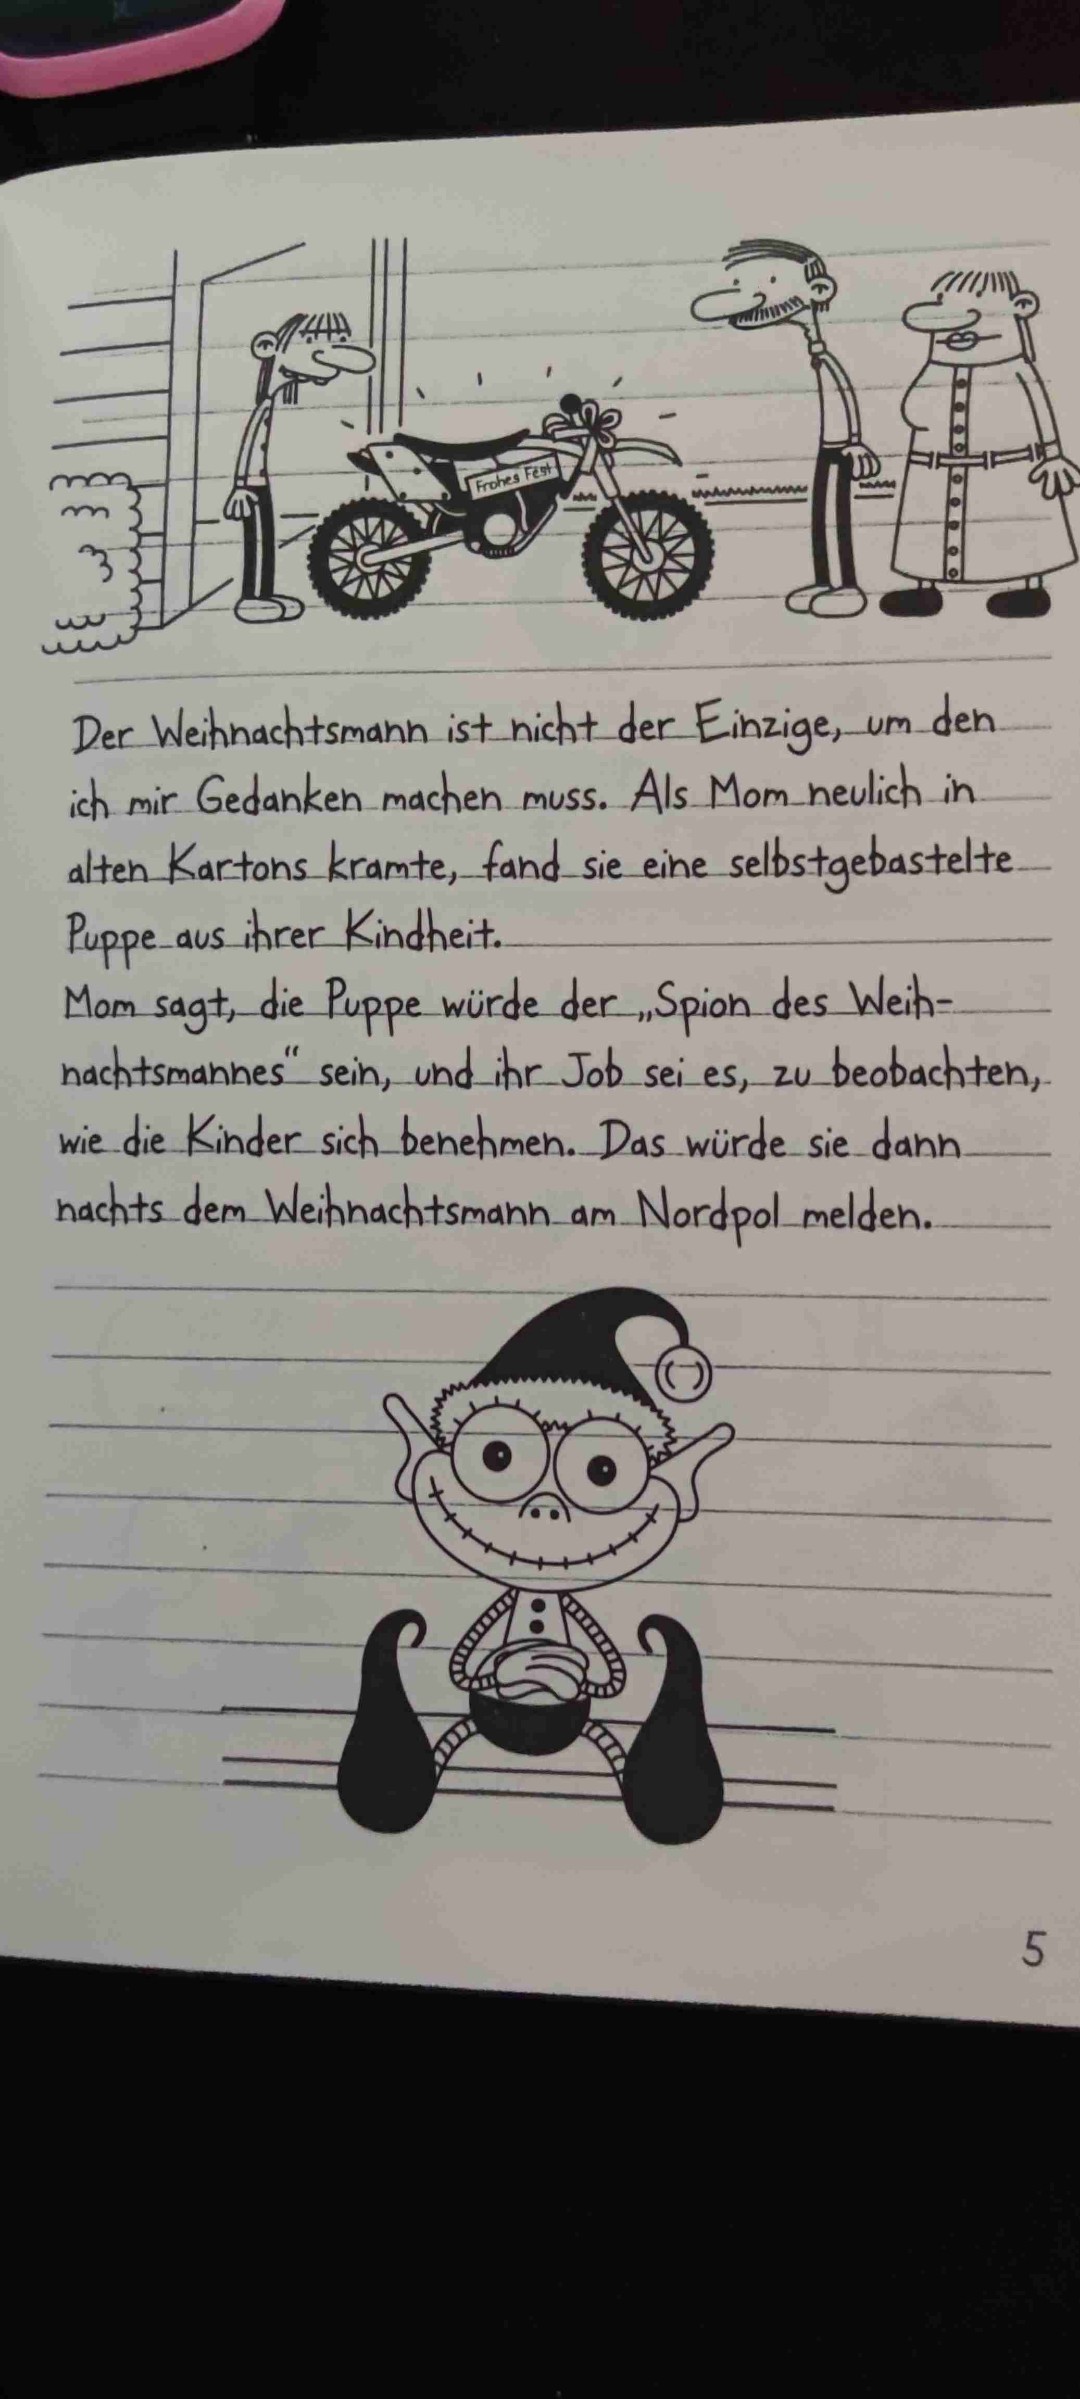 Frohes Fest
Der Weihnachtsmann ist nicht der Einzige, um den
ich mir Gedanken machen muss. Als Mom neulich in
alten Kartons kramte, fand sie eine selbstgebastelte
Puppe aus ihrer Kindheit.
Mom sagt, die Puppe würde der „Spion des Weih-
nachtsmannes“ sein, und ihr Job sei es, zu beobachten,
wie die Kinder sich benehmen. Das würde sie dann
nachts dem Weihnachtsmann am Nordpol melden.
5